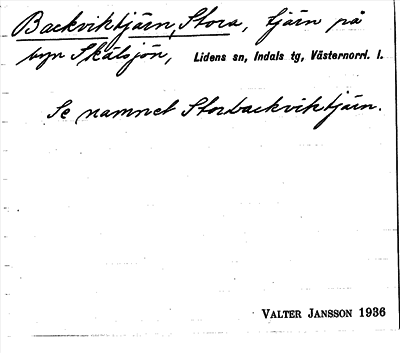 Backviktjärn, Stora, tjärn på
byn Skälsjön, Lidens sn, Indals tg, Västernorrl. l.
Se namnet Storbackviktjärn.
VALTER JANSSON 1936